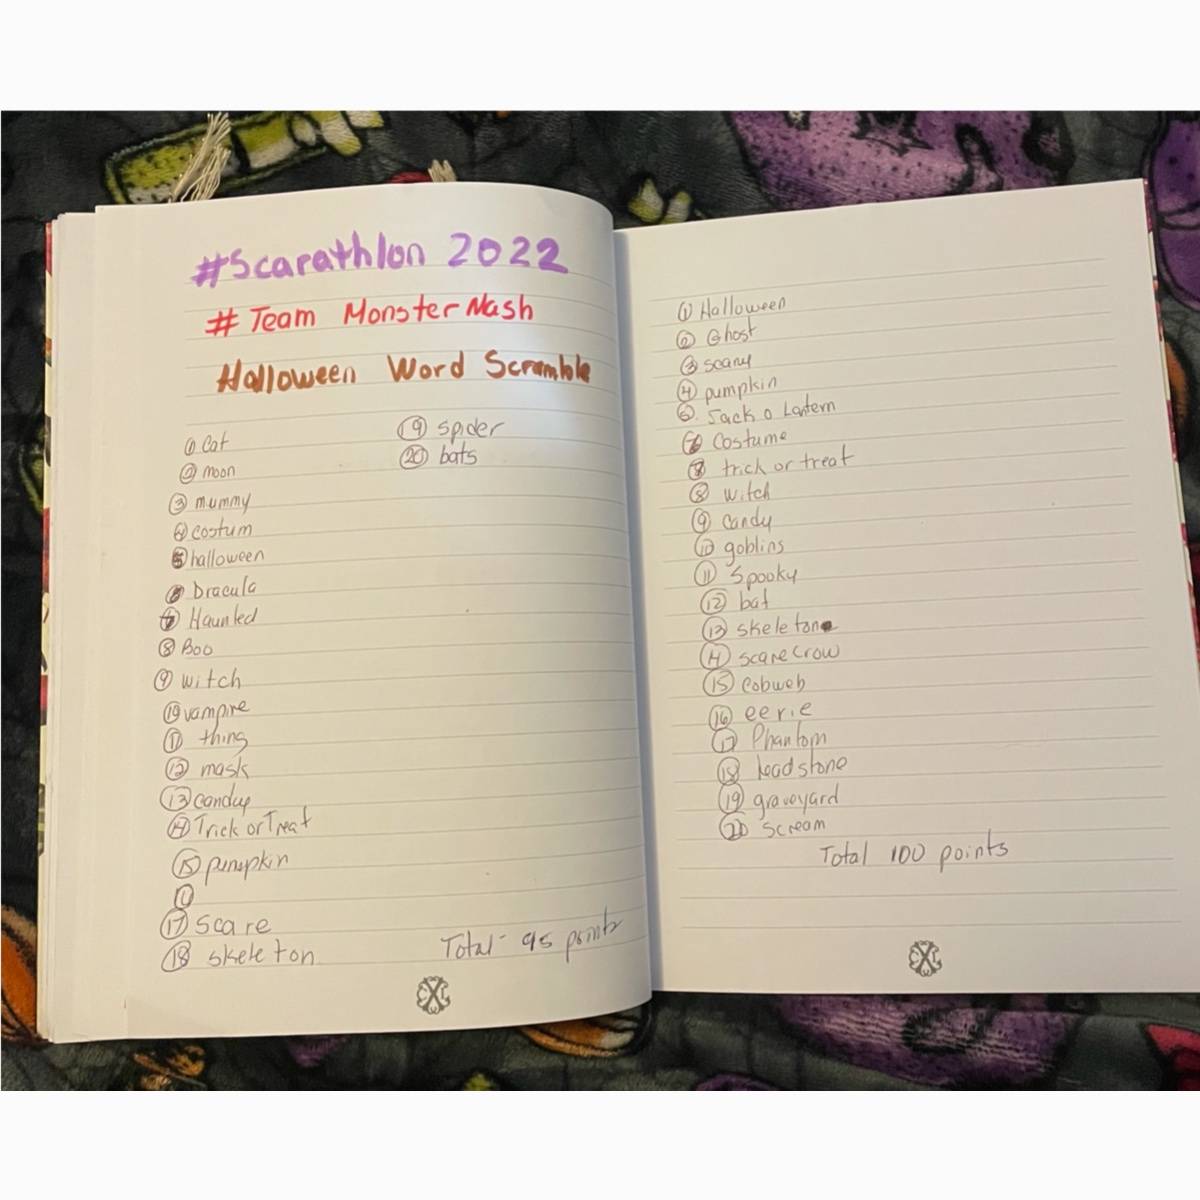 #Scarathlon 2022
# Team Monster Nash
Halloween Word Scramble
① Cat
② moon
③ mummy
④ costum
⑤ halloween
⑥ Dracula
⑦ Haunted
⑧ Boo
⑨ witch
⑩ vampire
⑪ thing
⑫ mask
⑬ candy
⑭ Trick or Treat
⑮ pumpkin
⑰ Scare
⑱ skeleton
⑲ spider
⑳ bats
Total - 95 points
① Halloween
② Ghost
③ scary
④ pumpkin
⑥. Jack o Lantern
⑦ Costume
⑧ trick or treat
⑧ witch
⑨ candy
⑩ goblins
⑪ Spooky
⑫ bat
⑬ skeleton
⑭ scarecrow
⑮ Cobweb
⑯ eerie
⑰ Phantom
⑱ headstone
⑲ graveyard
⑳ Scream
Total 100 points